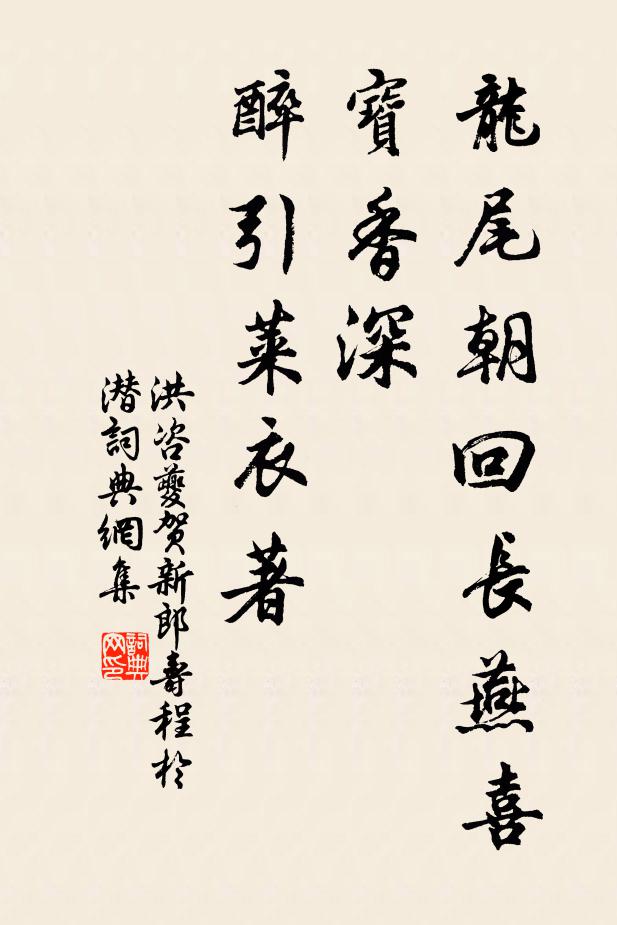 龍尾朝回長燕喜
寶香深
醉引萊衣著
洪咨夔賀新郎壽程於
潜詞典網集
詞典
网印